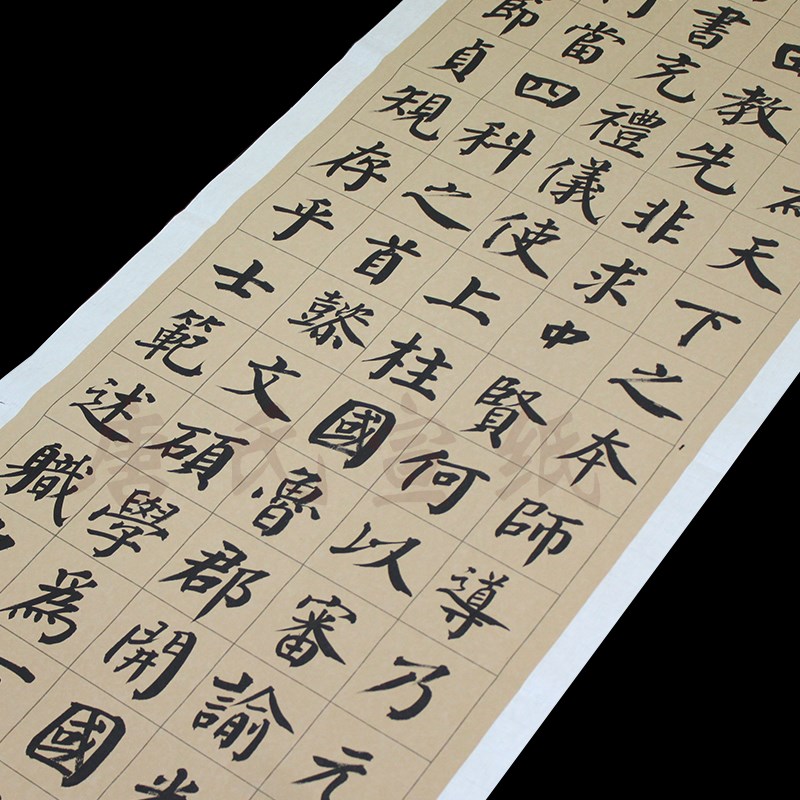 為天下之本師導乃元
由教先非求中賢何以審諭光
書充禮儀使上柱國魯郡開國
行當四科之首懿文碩學為
節貞規存乎士範述職
唐氏宣纸